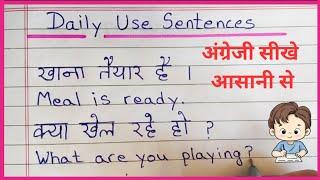 Daily Use Sentences
अंग्रेजी सीखे
आसानी से
खाना तैयार है ।
Meal is ready.
क्या खेल रहे हो ?
What are you playing?